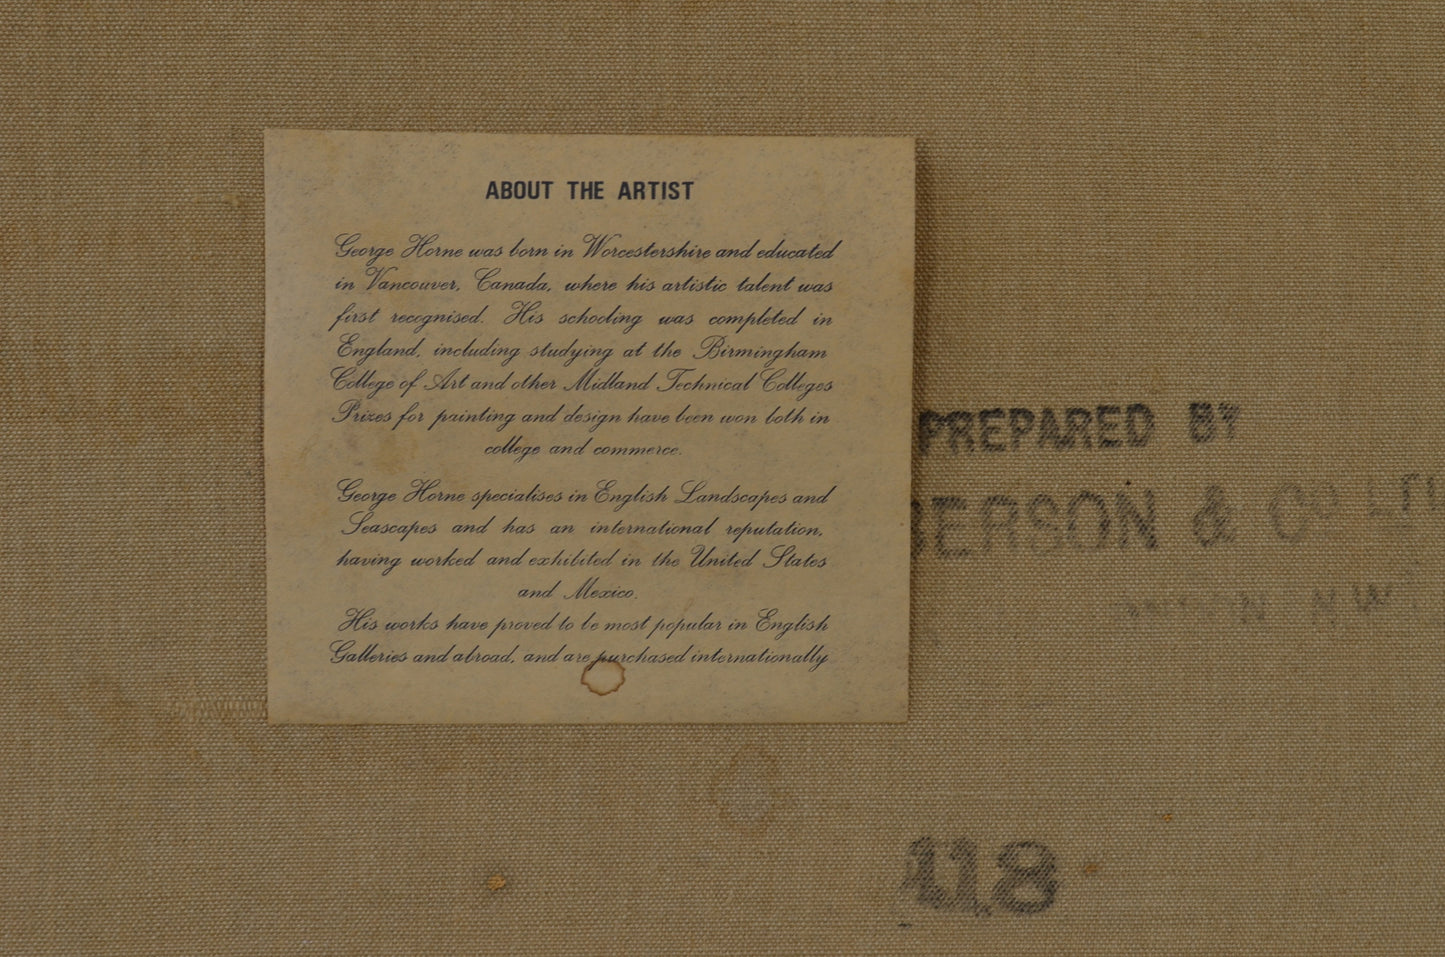 ABOUT THE ARTIST
George Horne was born in Worcestershire and educated
in Vancouver, Canada, where his artistic talent was
first recognised. His schooling was completed in
England, including studying at the Birmingham
College of Art and other Midland Technical Colleges
Prizes for painting and design have been won both in
college and commerce.
George Horne specialises in English Landscapes and
Seascapes and has an international reputation,
having worked and exhibited in the United States
and Mexico.
His works have proved to be most popular in English
Galleries and abroad, and are purchased internationally
PREPARED BY
BERSON & Co LTD
NW